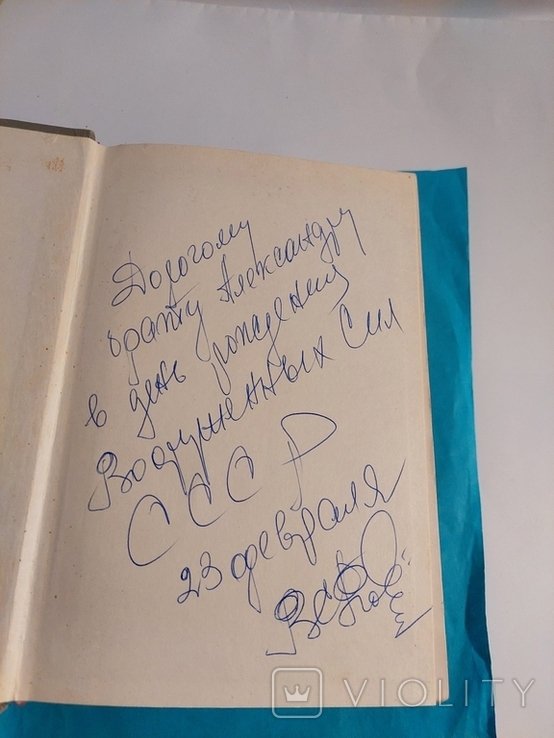 Дорогому
брату Александру
в день рождения
Вооруженных Сил
СССР
23 февраля
VIOLITY